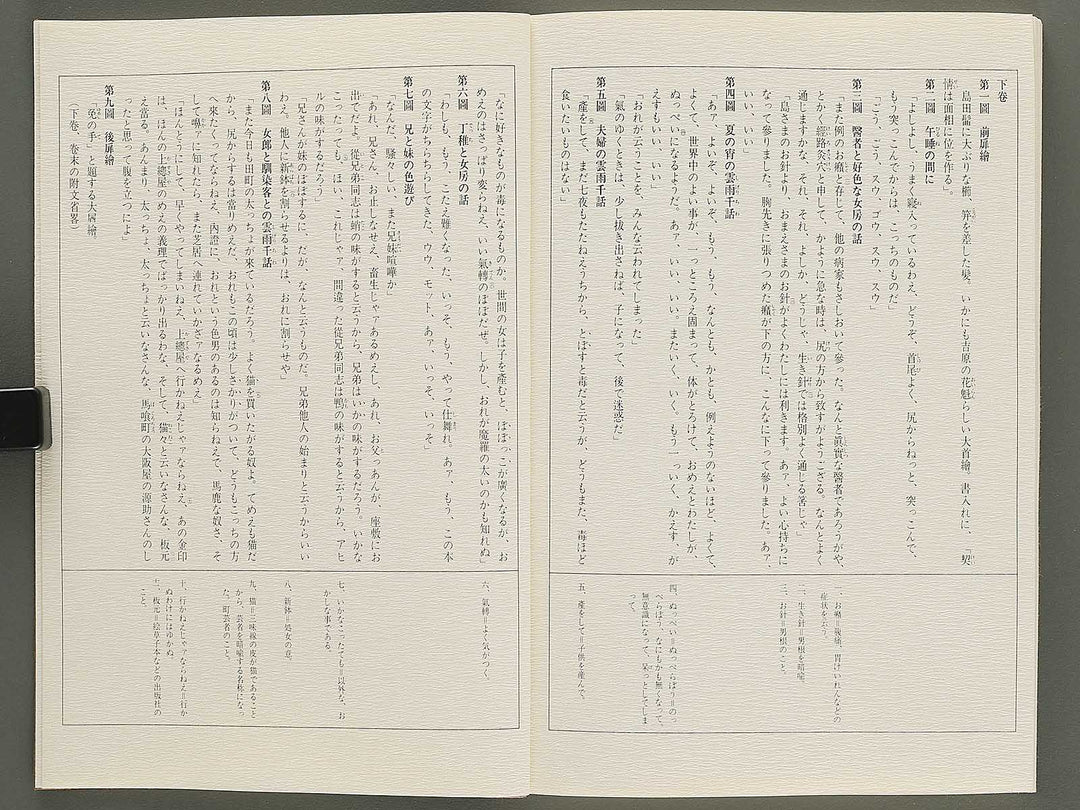 下巻
第一圖　前扉繪
島田髷に大ぶりな櫛、笄を差した髮。いかにも吉原の花魁らしい大首繪。書入れに、「契
情は面相に位を作る。」
第二圖　午睡の間に
「よしよし、うまく寝入っているわえ、どうぞ、首尾よく、尻からねっと、突っこんで、
もう突っこんでからは、こっちのものだ」
「ごう、ごう、スウ、ゴウ、スウ、スウ」
第三圖　醫者と好色な女房の話
「また例のお癪と存じて、他の病家もさしおいて參った。なんと眞實な醫者であろうがや、
とかく經路灸穴と申して、かように急な時は、尻の方から致すがようござる。なんとよく
通じますかな、それ、それ、よしか、どうしゃ、生き針では格別よく通じる筈じゃ」
「島さまのお針より、おまえさまのお針がよくわたしには利きます。あァ、よい心持ちに
なって參りました。胸先きに張りつめた癪が下の方に、こんなに下って參りました。あァ、
いい、いい」
第四圖　夏の宵の雲雨千話
「あァ、よいぞ、よいぞ、もう、もう、なんとも、かとも、例えようのないほど、よくて、
よくて、世界中のよい事が、一っところえ固まって、体がとろけて、おめえとわたしが、
ぬっぺいになるようだ。あァ、いい、いい。またいく、いく、もう一っいく、かえす、が
えすもいい、いい」
「おれが云うことを、みんな云われてしまった」
「氣のゆくときは、少し抜き出さねば、子になって、後で迷惑だ」
第五圖　夫婦の雲雨千話
「產をして、まだ七夜もたたねえうちから、とぼすと毒だと云うが、どうもまた、毒ほど
食いたいものはない」
一、お癪＝腹痛、胃けいれんなどの
症状を云う。
二、生き針＝男根を暗喩。
三、お針＝男根のこと。
四、ぬっぺい＝ぬっぺらぼう＝のっ
ぺらぼう、なにもかも無くなって、
無意識になって、呆っとしてしま
って、
五、產をして＝子供を產んで、
「なに好きなものが毒になるものか。世間の女は子を產むと、ぼぼっこが廣くなるが、お
めえのはさっぱり変らねえ、いい氣轉のぼぼだぜ。しかし、おれが魔羅の太いのかも知れぬ」
第六圖　丁稚と女房の話
「わしも、もう、こたえ難くなった、いっそ、もう、やって仕舞れ、あァ、もう、この本
の文字がちらちらしてきた、ウウ、モット、あァ、いっそ、いっそ」
第七圖　兄と妹の色遊び
「なんだ、騒々しい、また兄妹喧嘩か」
「あれ、兄さん、お止しなせえ、畜生しゃァあるめえし、あれ、お父っあんが、座敷にお
出でだよ。從兄同志は蛸の味がすると云うから、兄弟はいかの味がするだろう。いかな
こったっても、ほい、これじゃァ、間違った從兄弟同志は鴨の味がすると云うから、アヒ
ルの味がするだろう」
「兄さんが妹のぼぼするに、だが、なんと云うものだ。兄弟他人の始まりと云うからいい
わえ。他人に新鉢を割らせるよりは、おれに割らせや」
第八圖　女郎と馴染客との雲雨千話
「また今日も田町の太っちょが來ているだろう、よく猫を買いたがる奴よ。てめえも猫だ
から、尻がらするは當りめえだ、おれもこの頃は少しさかりがついて、どうもこっちの方
へ來たくってならねえ、內證に、おれという色男のあるのは知らねえで、馬鹿な奴さ、そ
して嚊ァに知れたら、また芝居へ連れていかざァなるめえ」
「ほんとうにして、早くやってしまいねえ、上總屋へ行かねえじゃァならねえ、あの金印
は、ほんの上總屋のめえの義理でばっかり出るわな、そして、猫々と云いなさんな、板元
え當る。あんまり、太っちょ、太っちょと云いなさんな、馬喰町の大阪屋の源助さんのし
ったと思って腹を立つによ」
第九圖　後扉繪
「兔の手」と題する大屠繪。
（下巻、卷末の附文省畧）
六、氣轉＝よく気がつく。
七、いかなこったっても＝以外な、お
かしな事である。
八、新鉢＝処女の意。
九、猫＝三味線の皮が猫であること
から、芸者を暗喩する名称になっ
た。町芸者のこと。
十、行かねえじゃァならねえ＝行か
ぬわけにはゆかぬ。
十一、板元＝絵草子本などの出版社の
こと。